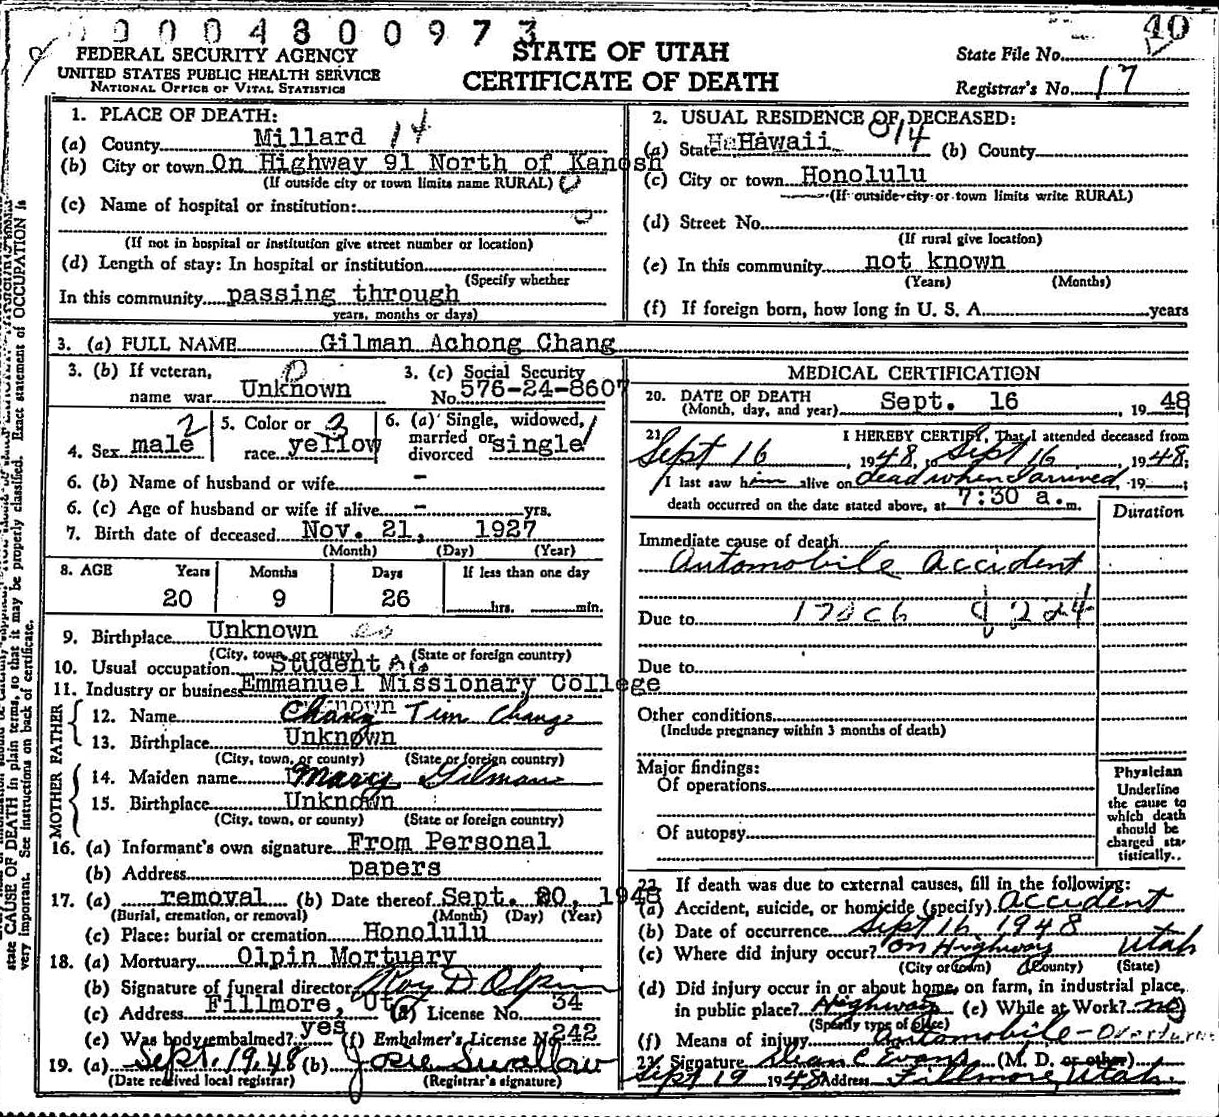 0 0 0 4 8 0 0 9 7 3
40
FEDERAL SECURITY AGENCY
UNITED STATES PUBLIC HEALTH SERVICE
NATIONAL OFFICE OF VITAL STATISTICS
STATE OF UTAH
CERTIFICATE OF DEATH
State File No.
Registrar's No. 17
1. PLACE OF DEATH:
(a) County Millard 14
(b) City or town On Highway 91 North of Kanosh
(If outside city or town limits name RURAL) 0
(c) Name of hospital or institution:
(If not in hospital or institution give street number or location)
(d) Length of stay: In hospital or institution
(Specify whether
In this community passing through
years, months or days)
2. USUAL RESIDENCE OF DECEASED:
(a) State Hawaii 814 (b) County
(c) City or town Honolulu
(If outside city or town limits write RURAL)
(d) Street No.
(If rural give location)
(e) In this community not known
(Years) (Months)
(f) If foreign born, how long in U. S. A. years
3. (a) FULL NAME Gilman Achong Chang
3. (b) If veteran, name war Unknown
3. (c) Social Security No. 576-24-8607
4. Sex male 2
5. Color or race yellow 3
6. (a) Single, widowed, married or divorced single 1
6. (b) Name of husband or wife -
6. (c) Age of husband or wife if alive - yrs.
7. Birth date of deceased Nov. 21, 1927
(Month) (Day) (Year)
8. AGE Years Months Days If less than one day
20 9 26 hrs. min.
9. Birthplace Unknown
(City, town, or county) (State or foreign country)
10. Usual occupation Student
11. Industry or business Emmanuel Missionary College
FATHER
12. Name Chang Tim Chang
13. Birthplace Unknown
(City, town, or county) (State or foreign country)
MOTHER
14. Maiden name Mary Gilman
15. Birthplace Unknown
(City, town, or county) (State or foreign country)
16. (a) Informant's own signature From Personal
(b) Address papers
17. (a) removal (b) Date thereof Sept. 20, 1948
(Burial, cremation, or removal) (Month) (Day) (Year)
(c) Place: burial or cremation Honolulu
18. (a) Mortuary Olpin Mortuary
(b) Signature of funeral director Roy D Olpin
(c) Address Fillmore, Ut (d) License No. 34
(e) Was body embalmed? yes (f) Embalmer's License No. 242
19. (a) Sept. 19, 48 (b) Josie Swallow
(Date received local registrar) (Registrar's signature)
MEDICAL CERTIFICATION
20. DATE OF DEATH
(Month, day, and year) Sept. 16 , 1948
21. I HEREBY CERTIFY, That I attended deceased from
Sept 16 , 1948, to Sept 16 , 1948;
I last saw him alive on dead when I arrived , 19 ;
death occurred on the date stated above, at 7:30 a. m.
Duration
Immediate cause of death
Automobile accident
Due to 170c6 8224
Due to
Other conditions
(Include pregnancy within 3 months of death)
Major findings:
Of operations
Of autopsy
Physician
Underline
the cause to
which death
should be
charged sta-
tistically.
22. If death was due to external causes, fill in the following:
(a) Accident, suicide, or homicide (specify) accident
(b) Date of occurrence Sept 16, 1948
(c) Where did injury occur? on Highway Utah
(City or town) (County) (State)
(d) Did injury occur in or about home, on farm, in industrial place,
in public place? Highway (e) While at Work? no
(Specify type of place)
(f) Means of injury automobile - overturne
23. Signature Dean C Evans (M. D. or other)
Sept 19 1948 Address Fillmore, Utah.
state CAUSE OF DEATH in plain terms, so that it may be properly classified. Exact statement of OCCUPATION is
very important. See instructions on back of certificate.